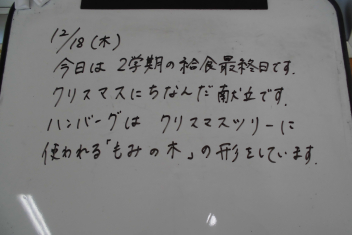 12/18(木)
今日は 2学期の給食最終日です.
クリスマスにちなんだ献立です.
ハンバーグは クリスマスツリーに
使われる「もみの木」の形をしています.